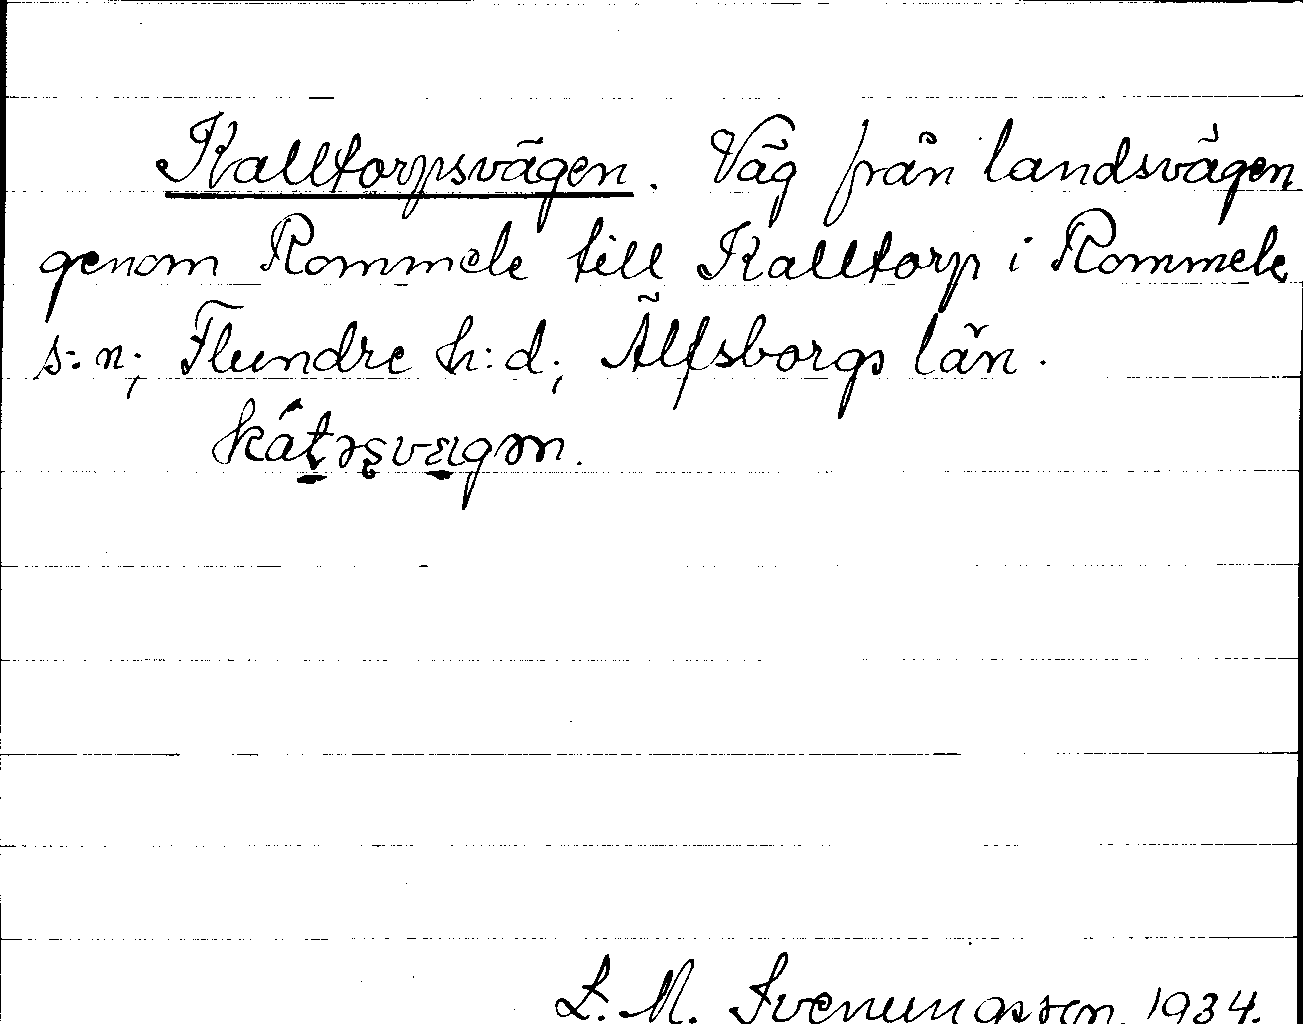 Kalltorpsvägen. Väg från landsvägen
genom Rommele till Kalltorp i Rommele
s:n; Flundre h:d; Älfsborgs län.
L. M. Svenungsson 1934.